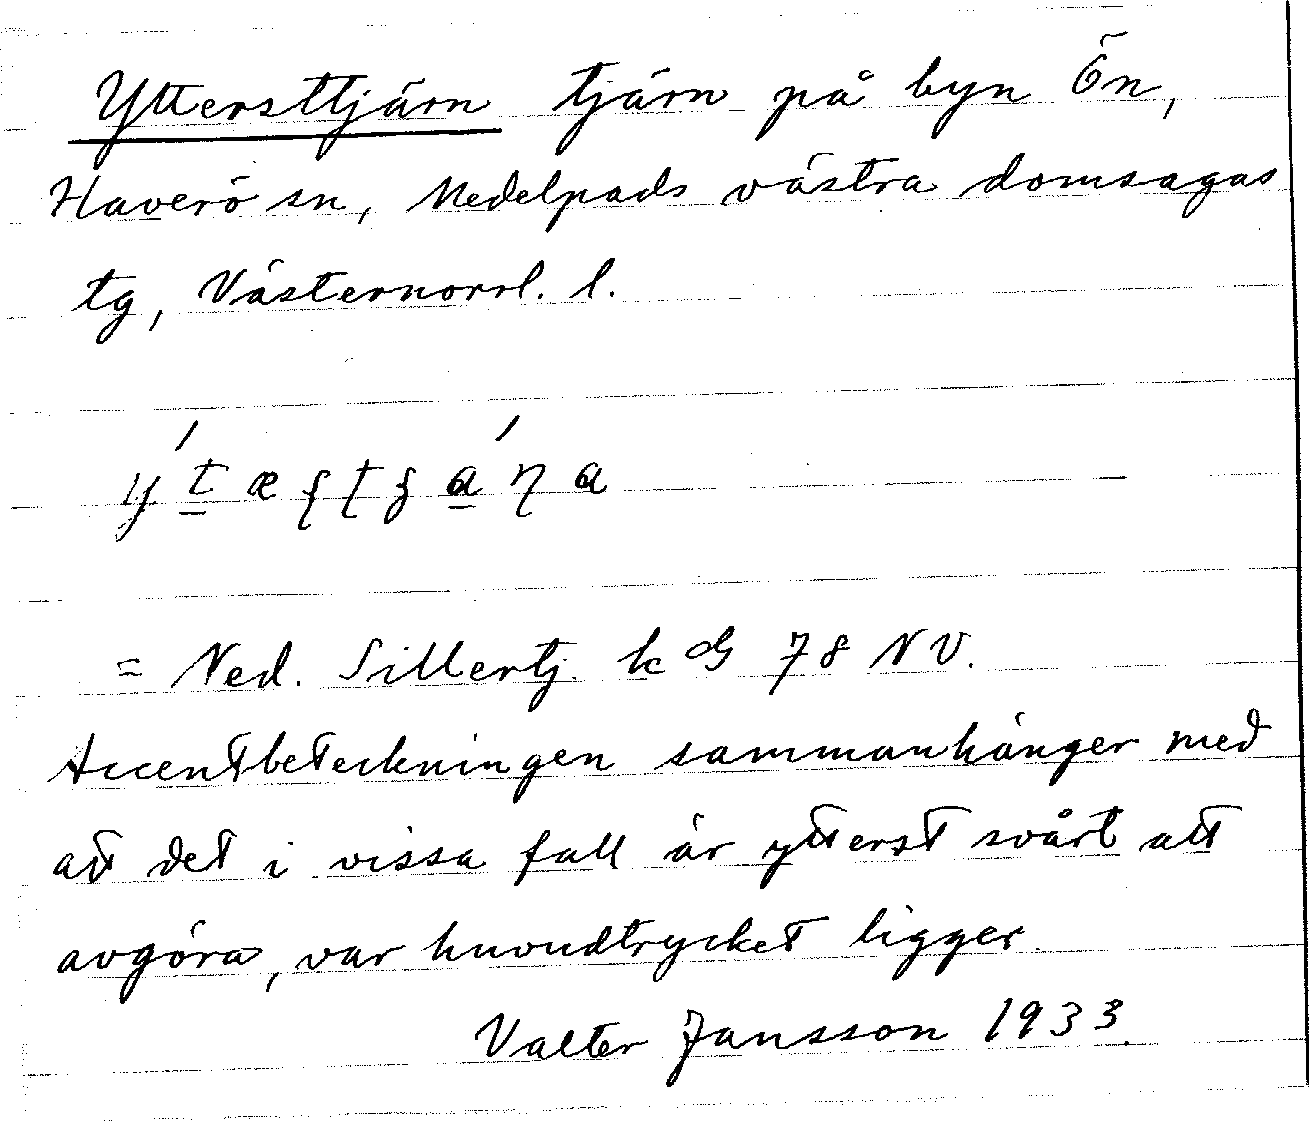 Yttersttjärn tjärn på byn Ön,
Haverö sn, Medelpads västra domsagas
tg, Västernorrl. l.
= Ned. Sillertj. k G 78 NV.
Accentbeteckningen sammanhänger med
att det i vissa fall är ytterst svårt att
avgöra, var huvudtrycket ligger.
Valter Jansson 1933.